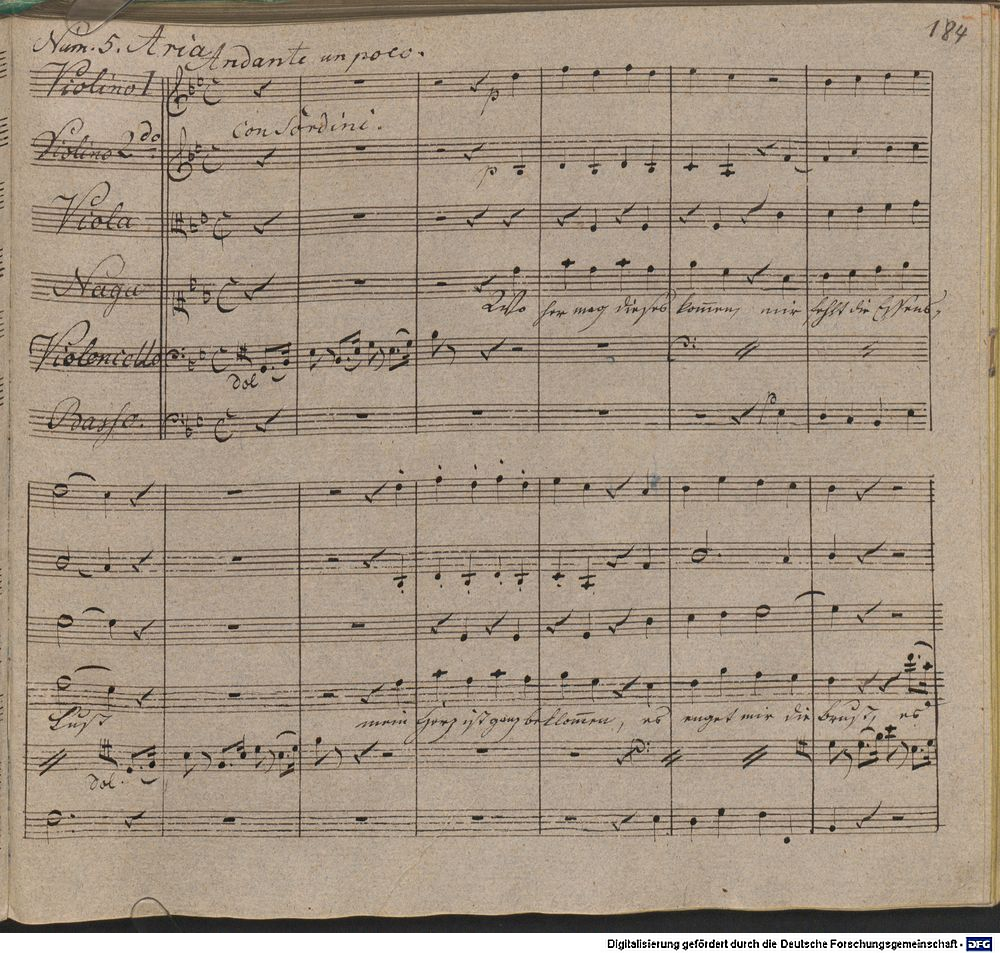 184
Num. 5. Aria Andante un poco.
Violino 1
Con Sordini.
p
Violino 2do
p
Viola
Naga
Wo her mag dieses kom̄en, mir fehlt die Essens,
Violoncello
dol
Basso.
p
Lust mein Herz ist ganz beklom̄en, es enget mir die Brust, es
dol.
Digitalisierung gefördert durch die Deutsche Forschungsgemeinschaft - DFG